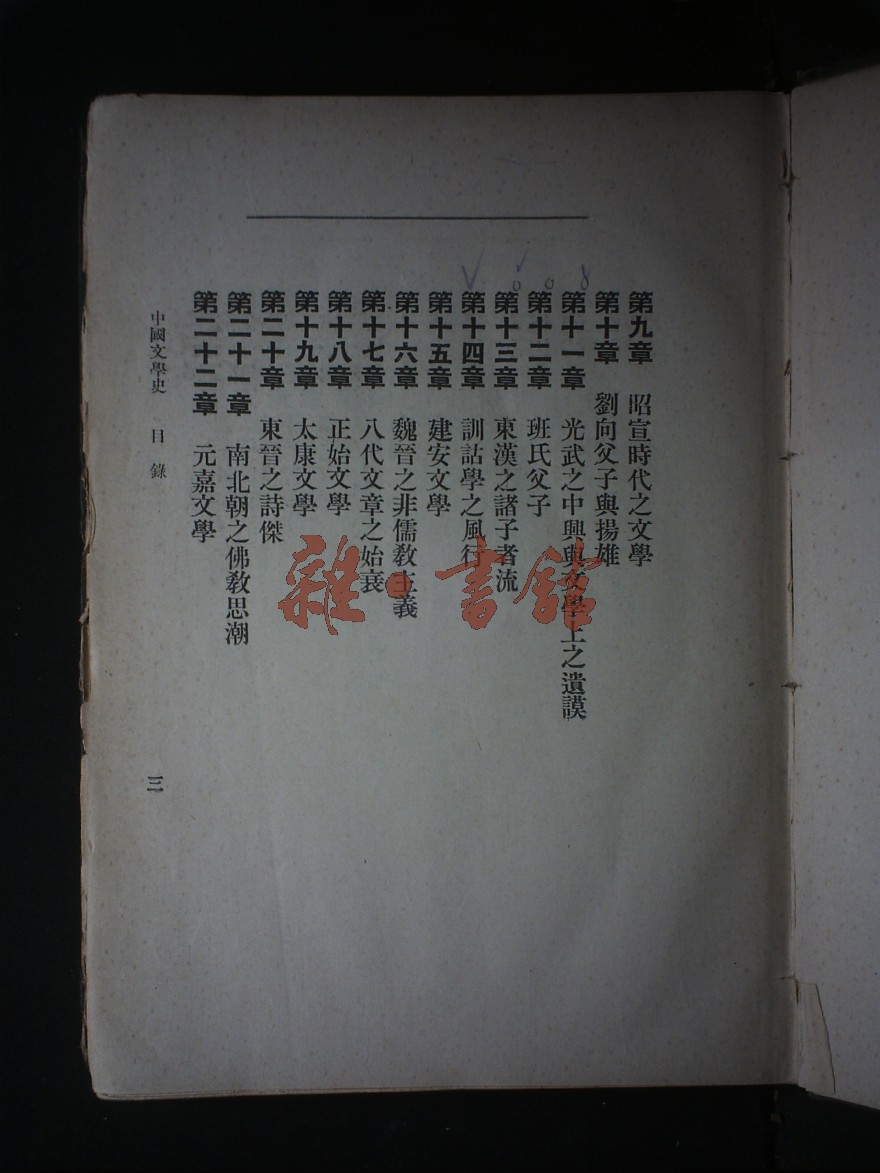 第九章 昭宣時代之文學
第十章 劉向父子與揚雄
第十一章 光武之中興與文學上之遺謨
第十二章 班氏父子
第十三章 東漢之諸子者流
第十四章 訓詁學之風行
第十五章 建安文學
第十六章 魏晉之非儒教主義
第十七章 八代文章之始衰
第十八章 正始文學
第十九章 太康文學
第二十章 東晉之詩傑
第二十一章 南北朝之佛教思潮
第二十二章 元嘉文學
中國文學史 目錄
三
雜·書館